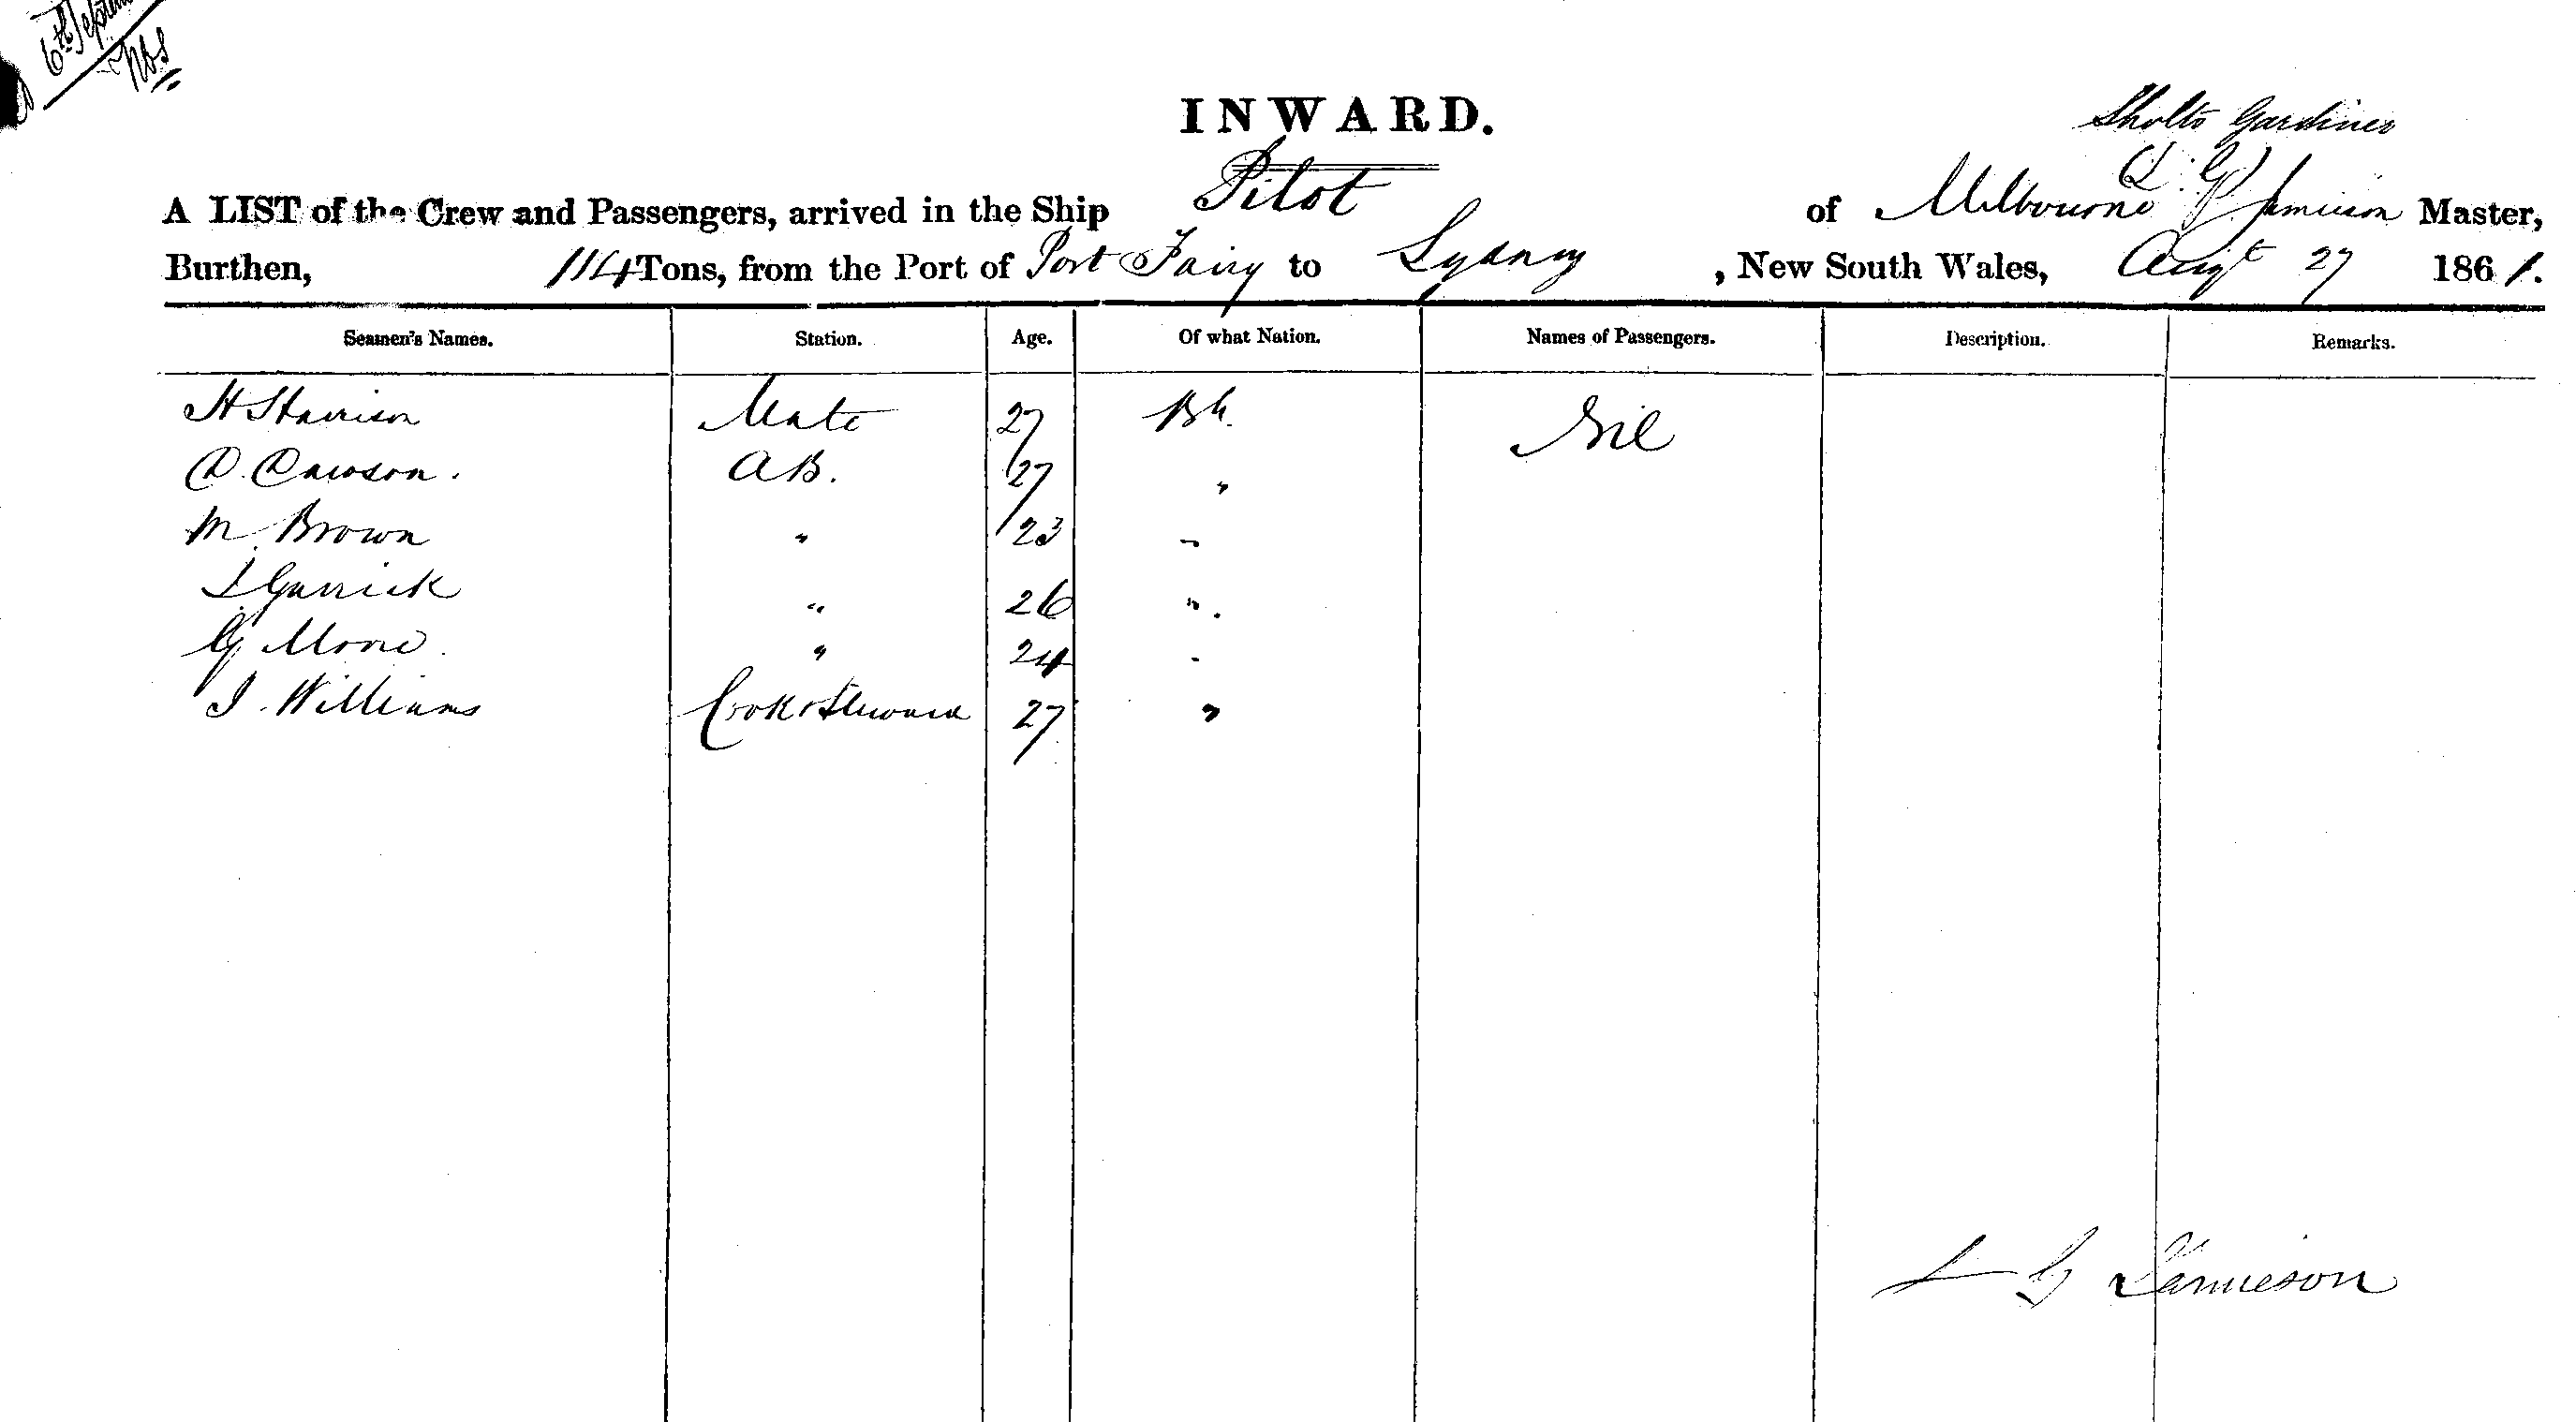 6th Septem
INWARD.
Sholto Gardiner
A LIST of the Crew and Passengers, arrived in the Ship Pilot of Melbourne L. G. Jamieson Master,
Burthen, 114 Tons, from the Port of Port Fairy to Sydney, New South Wales, Augt 27 1861.
Seamen's Names. Station. Age. Of what Nation. Names of Passengers. Description. Remarks.
H Harrison Mate 27 Bh. Nil
D. Dawson. AB. 27 "
M. Brown " 23 "
J Garrick " 26 "
G Moore. " 24 "
J. Williams Cook & Steward 27 "
L G Jamieson